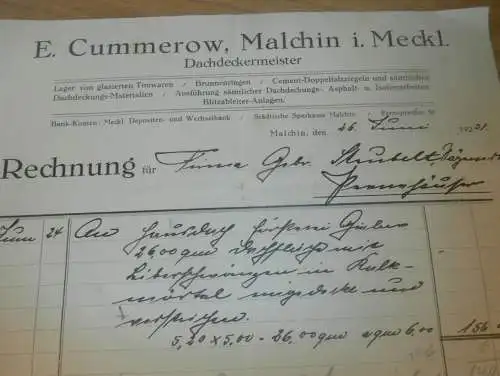 E. Cummerow, Malchin i. Meckl.
Dachdeckermeister
Lager von glasierten Tonwaren / Brunnenringen / Cement-Doppelfalzziegeln und sämtlichen
Dachdeckungs-Materialien / Ausführung sämtlicher Dachdeckungs-, Asphalt- u. Isolierarbeiten
Blitzableiter-Anlagen.
Bank-Konten: Meckl. Depositen- und Wechselbank / Städtische Sparkasse Malchin / Fernsprecher Nr
Malchin, den 26. Juni 192
Rechnung für Firma Gebr.
Juni 24 An Hausdach Försterei
26,00 qm Dachfläche mit
in Kalk-
mörtel und
verstrichen.
5,20 x 5,00 = 26,00 qm a qm 6,00 156